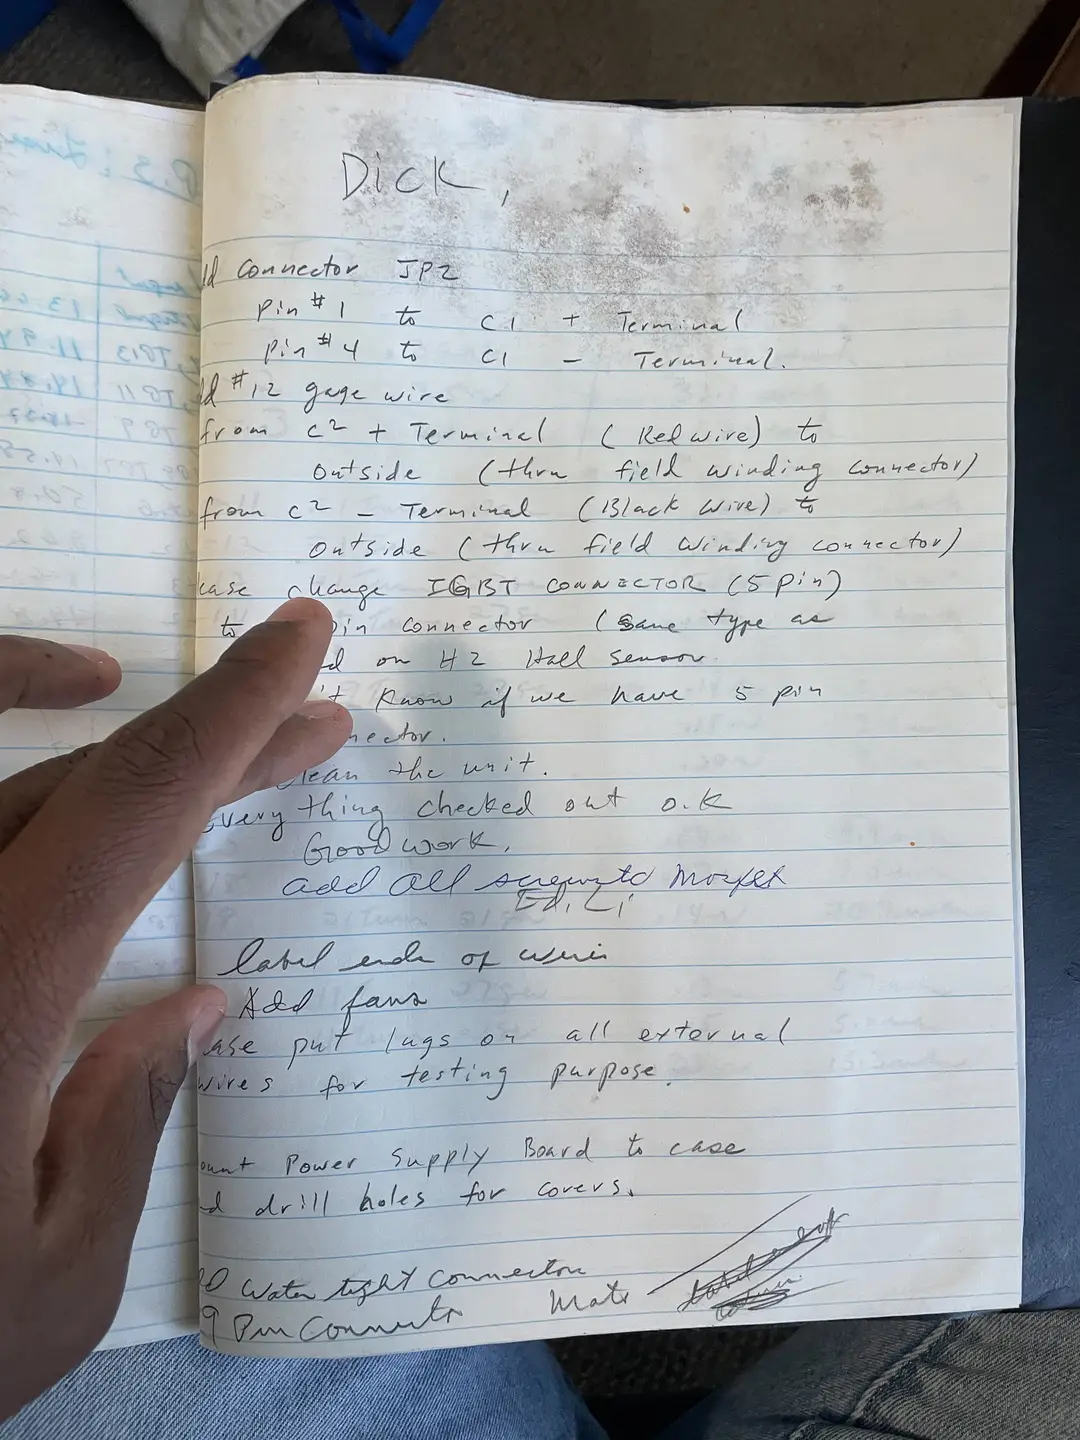 Dick,
ld connector JP2
Pin #1 to C1 + Terminal
Pin #4 to C1 - Terminal.
ld #12 gage wire
from C2 + Terminal (Red wire) to
outside (thru field winding connector)
from C2 - Terminal (Black wire) to
outside (thru field winding connector)
case change IGBT CONNECTOR (5 pin)
to pin connector (same type as
d on H2 Hall sensor
't know if we have 5 pin
nector.
lean the unit.
Every thing checked out o.k
Good work,
add all screws to Mosfet
Ed. Li
label ends of wires
Add fans
ase put lugs on all external
wires for testing purpose.
ount Power Supply Board to case
d drill holes for covers.
d Water tight connector
9 Pin Connector Mate